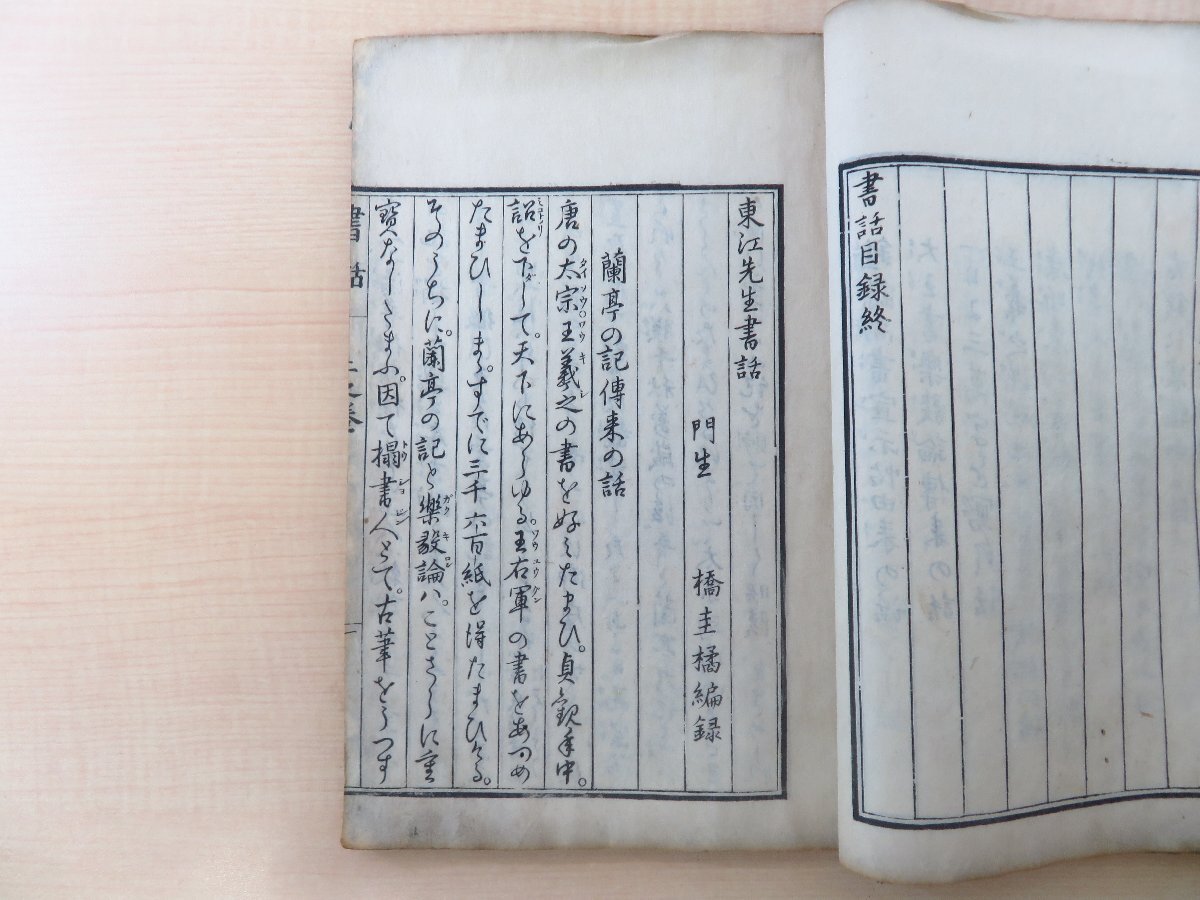 書話目録終
東江先生書話
門生 橋圭橘編録
蘭亭の記傳来の話
唐の太宗。王羲之の書を好みたまひ。貞観年中。
詔を下して。天下にあらゆる。王右軍の書をあつめ
たまひしまゝ。すでに三千六百紙を得たまひける。
そのうちに。蘭亭の記と樂毅論ハ。ことさらに重
寶なしたまふ。因て搨書人とて。古筆をうつす
書話